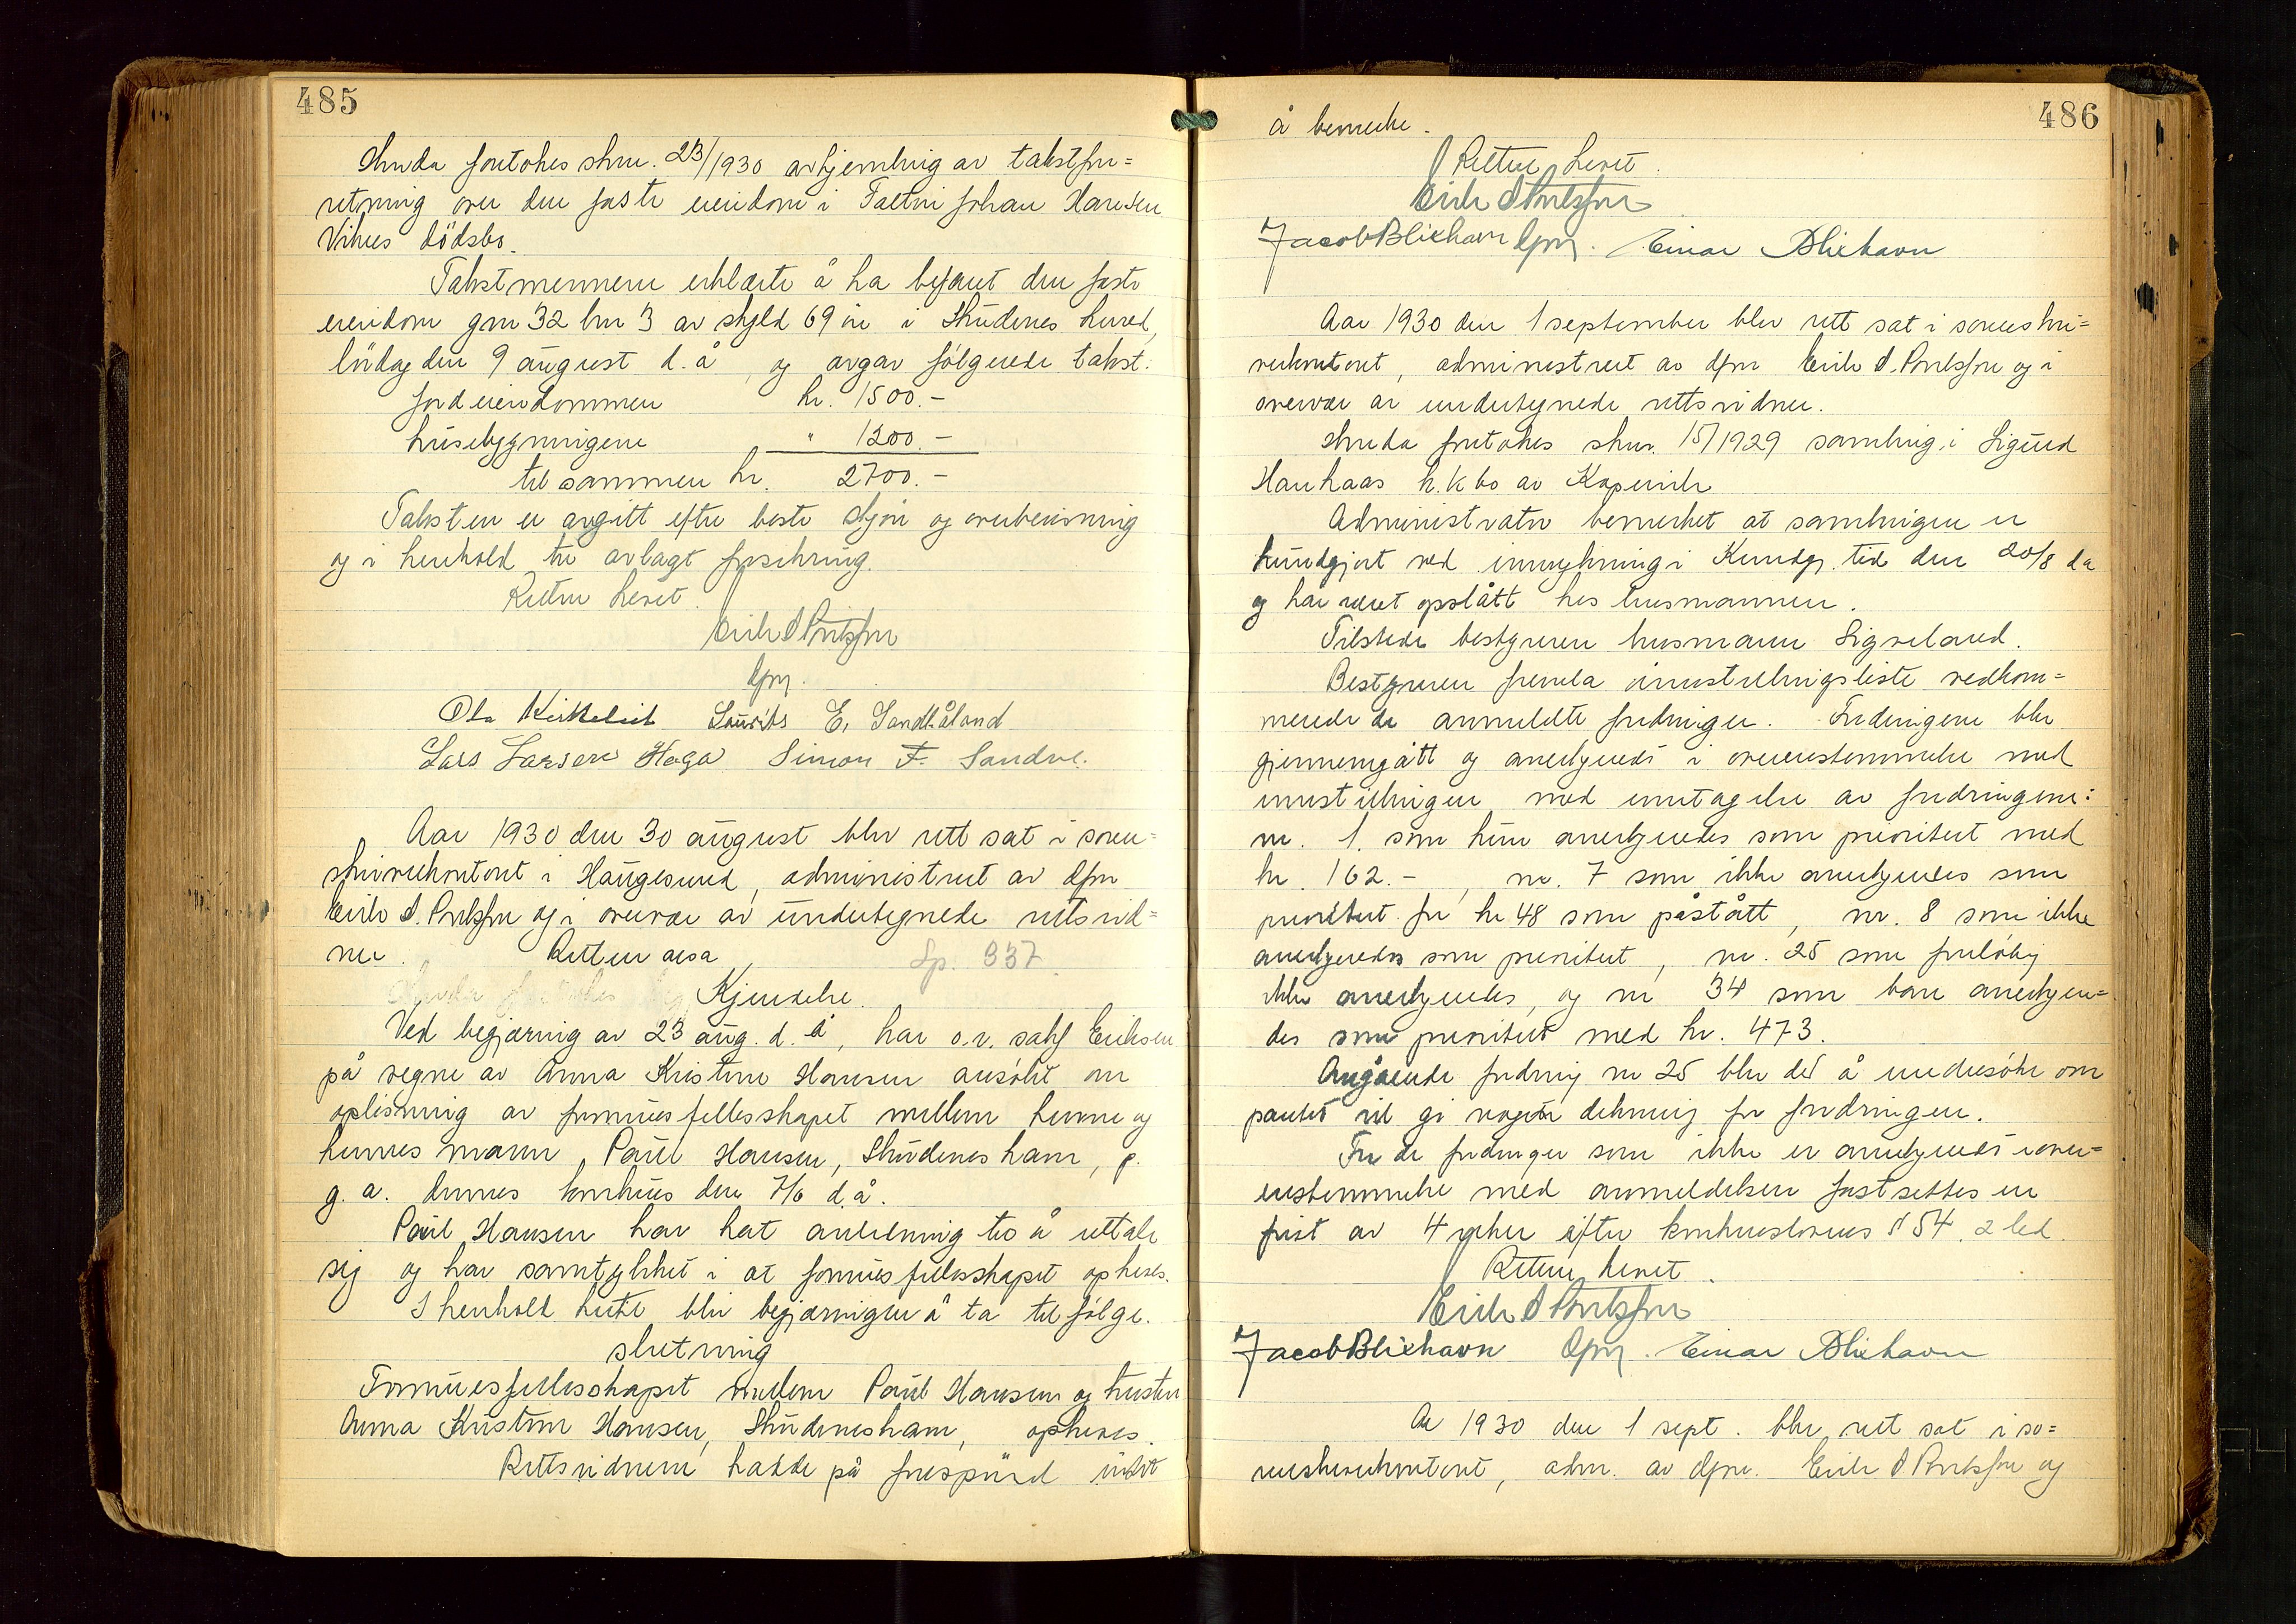 485
Herunda foretokes skm. 23/1930 avhjemling av takstfor=
retning over den faste eiendom i Faetni Johan Hansen
Vikees dödsbo.
Takstmennene erklærte å ha befaret den faste
eiendom gnr 32 bnr 3 av skyld 69 øre i Skudenes herred,
lördag den 9 august d.å, og avgav fölgende takst:
Jordeiendommen kr. 1500.-
husebygningene " 1200.-
tilsammen kr. 2700.-
Taksten er avgitt efter beste skjön og overbevisning
og i henhold til avlagt forsikring.
Retten hevet.
Eirik S Poulsson
dfm.
Ola Kirkeleit Laurits E. Sandhåland
Lars Larsen Haga Simon F. Sandve.
Aar 1930 den 30 august blev rett sat i soren=
skriverkontoret i Haugesund, administrert av dfm
Eirik S. Poulsson og i overvær av undertegnede rettsvid=
ner. Retten avsa Sp. 337
Kjendelse.
Ved begjæring av 23 aug. d.å, har o.r. sakf Eriksen
på vegne av Anna Kristine Hansen ansökt om
oplösning av formuesfellesskapet mellem henne og
hennes mann, Paul Hansen, Skudeneshavn, p.
g.a. dennes konkurs den 7/6 d.å.
Paul Hansen har hat anledning til å uttale
sig og har samtykket i at formuesfellesskapet opheves.
I henhold hertil blir begjæringen å ta til fölge.
slutning
Formuesfellesskapet mellem Paul Hansen og hustru
Anna Kristine Hansen, Skudeneshavn, opheves.
Rettsvidnene hadde på forespörsel intet
486
å bemerke.
Retten hevet.
Eirik S Poulsson
Jacob Blixhavn dfm. Einar Blixhavn
Aar 1930 den 1 september blev rett sat i sorenskri=
verkontoret, administrert av dfm Eirik S. Poulsson og i
overvær av undertegnede rettsvidner.
Herunda foretokes skm. 15/1929 samling i Sigurd
Hanhaas k.k bo av Kopervik
Administrator bemerket at samlingen er
kundgjort ved innrykning i Kundgj. tid den 20/8 da
og har været opslått hos lensmannen.
Tilstede bestyreren lensmann Sigveland.
Bestyreren fremla innstillingsliste vedkom=
mende de anmeldte fordringer. Fordringene blev
gjennemgått og anerkjendt i overensstemmelse med
innstillingen med unntagelse av fordringene:
nr. 1. som kun anerkjendes som prioritert med
kr. 162.-, nr. 7 som ikke anerkjendes som
prioritert for kr 48 som påstått, nr. 8 som ikke
anerkjendes som prioritert, nr. 25 som forelöbig
ikke anerkjendes, og nr 34 som bare anerkjen=
des som prioritert med kr. 473.
Angående fordring nr 25 blev det å undersöke om
pantet vil gi nogen dekning for fordringen.
For de fordringer som ikke er anerkjendt i over=
ensstemmelse med anmeldelsen fastsettes en
frist av 4 uker efter konkurslovens § 54, 2 led.
Retten hevet.
Eirik S Poulsson
Jacob Blixhavn dfm. Einar Blixhavn
År 1930 den 1 sept. blev rett sat i so=
renskriverkontoret, adm. av dfm. Eirik S Poulsson og